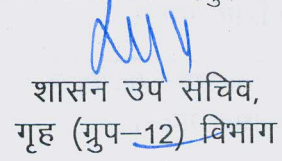 शासन उप सचिव,
गृह (ग्रुप–12) विभाग